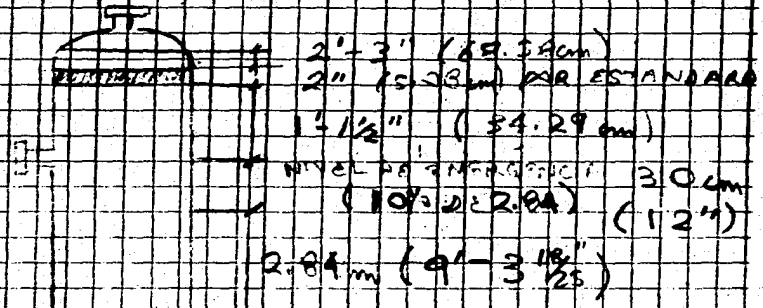 2'-3" (68.58cm)
2" (5.08cm) POR ESTANDARD
1'-1½" (34.29 cm)
NIVEL DE EMERGENCIA 30cm
(10% DE 2.84) (12")
2.84 m (9'-3 18/25")